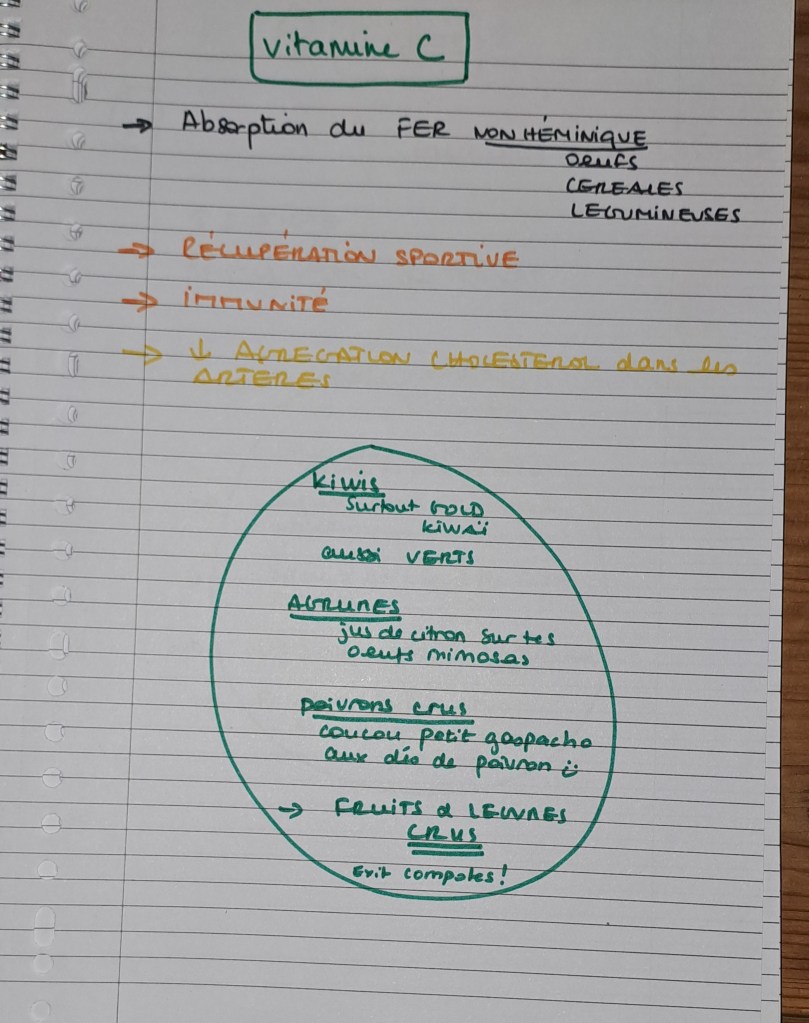 vitamine C
→ Absorption du FER NON HÉMINIQUE
OEUFS
CEREALES
LEGUMINEUSES
→ RÉCUPÉRATION SPORTIVE
→ IMMUNITÉ
→ ↓ AGREGATION CHOLESTEROL dans les
ARTERES
kiwis
Surtout GOLD
kiwaï
aussi VERTS
AGRUMES
jus de citron sur tes
oeufs mimosas
poivrons crus
coucou petit gaspacho
aux dés de poivron :)
→ FRUITS & LEGUMES
CRUS
Exit compotes!